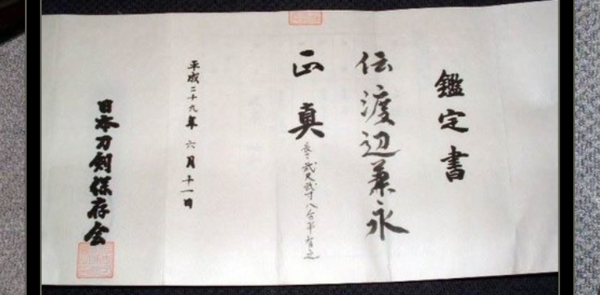 鑑定書
伝渡辺兼永
正真
長さ弐尺弐寸八分半有之
平成二十九年六月十一日
日本刀剣保存会